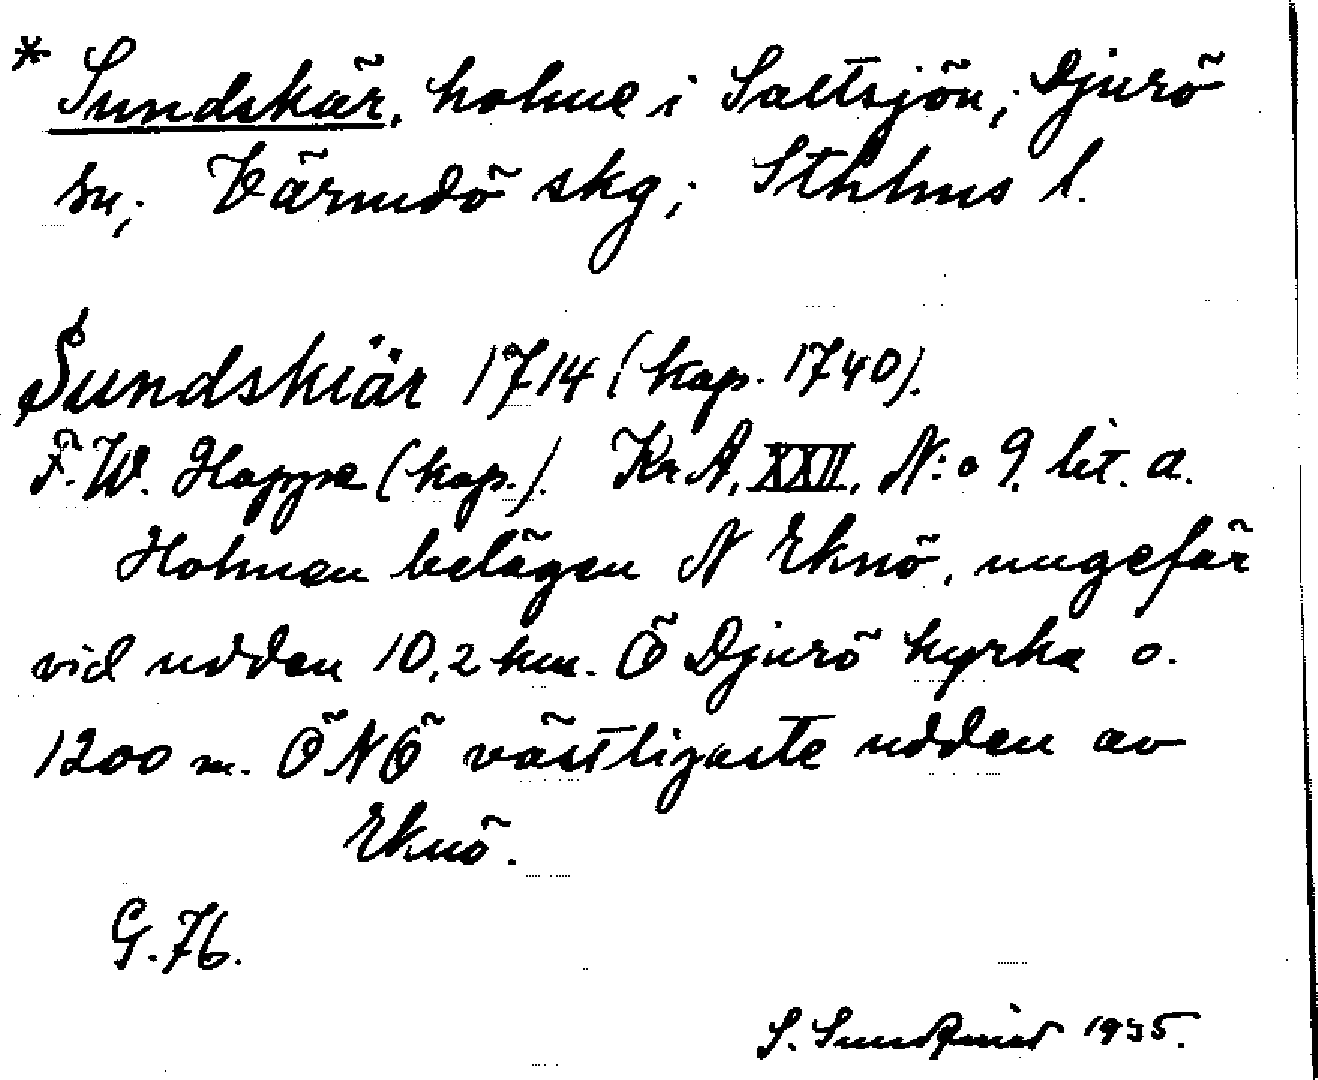 * Sundskär, holme i Saltsjön; Djurö
sn; Värmdö skg; Sthlms l.
Sundskiär 1714 (kop. 1740).
F. W. Hoppe (kop.). Kr A, XXII, N:o 9. lit. a.
Holmen belägen N Eknö, ungefär
vid udden 10,2 km. Ö Djurö kyrka o.
1200 m. ÖNÖ västligaste udden av
Eknö.
G. 76.
S. Sundqvist 1935.